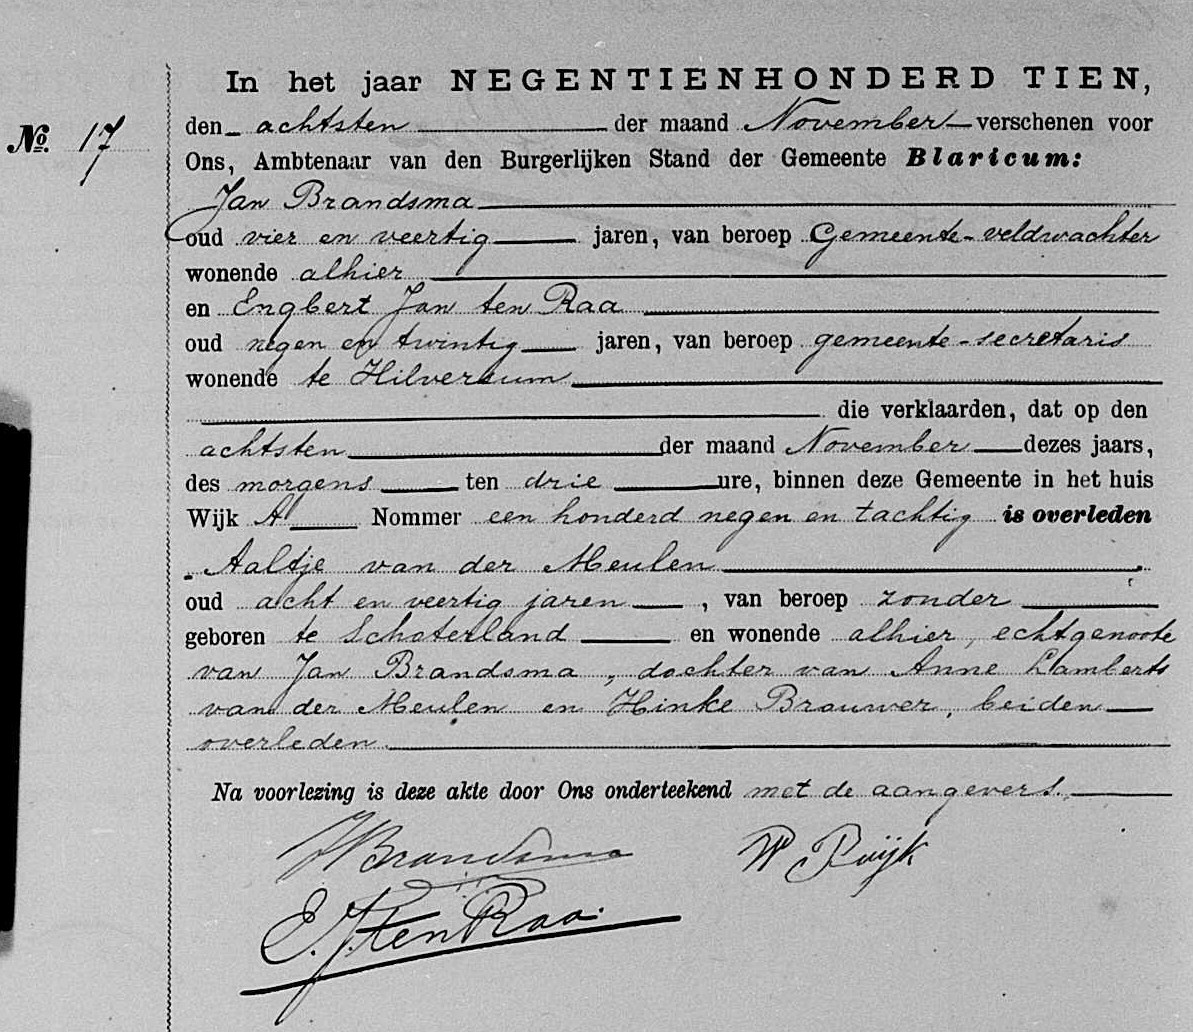 In het jaar NEGENTIENHONDERD TIEN,
No. 17
den achtsten der maand November verschenen voor
Ons, Ambtenaar van den Burgerlijken Stand der Gemeente Blaricum:
Jan Brandsma
oud vier en veertig jaren, van beroep Gemeente-veldwachter
wonende alhier
en Engbert Jan ten Raa
oud negen en twintig jaren, van beroep gemeente-secretaris
wonende te Hilversum
die verklaarden, dat op den
achtsten der maand November dezes jaars,
des morgens ten drie ure, binnen deze Gemeente in het huis
Wijk A Nommer een honderd negen en tachtig is overleden
Aaltje van der Meulen
oud acht en veertig jaren, van beroep zonder
geboren te Schoterland en wonende alhier, echtgenoote
van Jan Brandsma, dochter van Anne Lamberts
van der Meulen en Hinke Brouwer, beiden
overleden.
Na voorlezing is deze akte door Ons onderteekend met de aangevers.
J Brandsma
E. J. ten Raa.